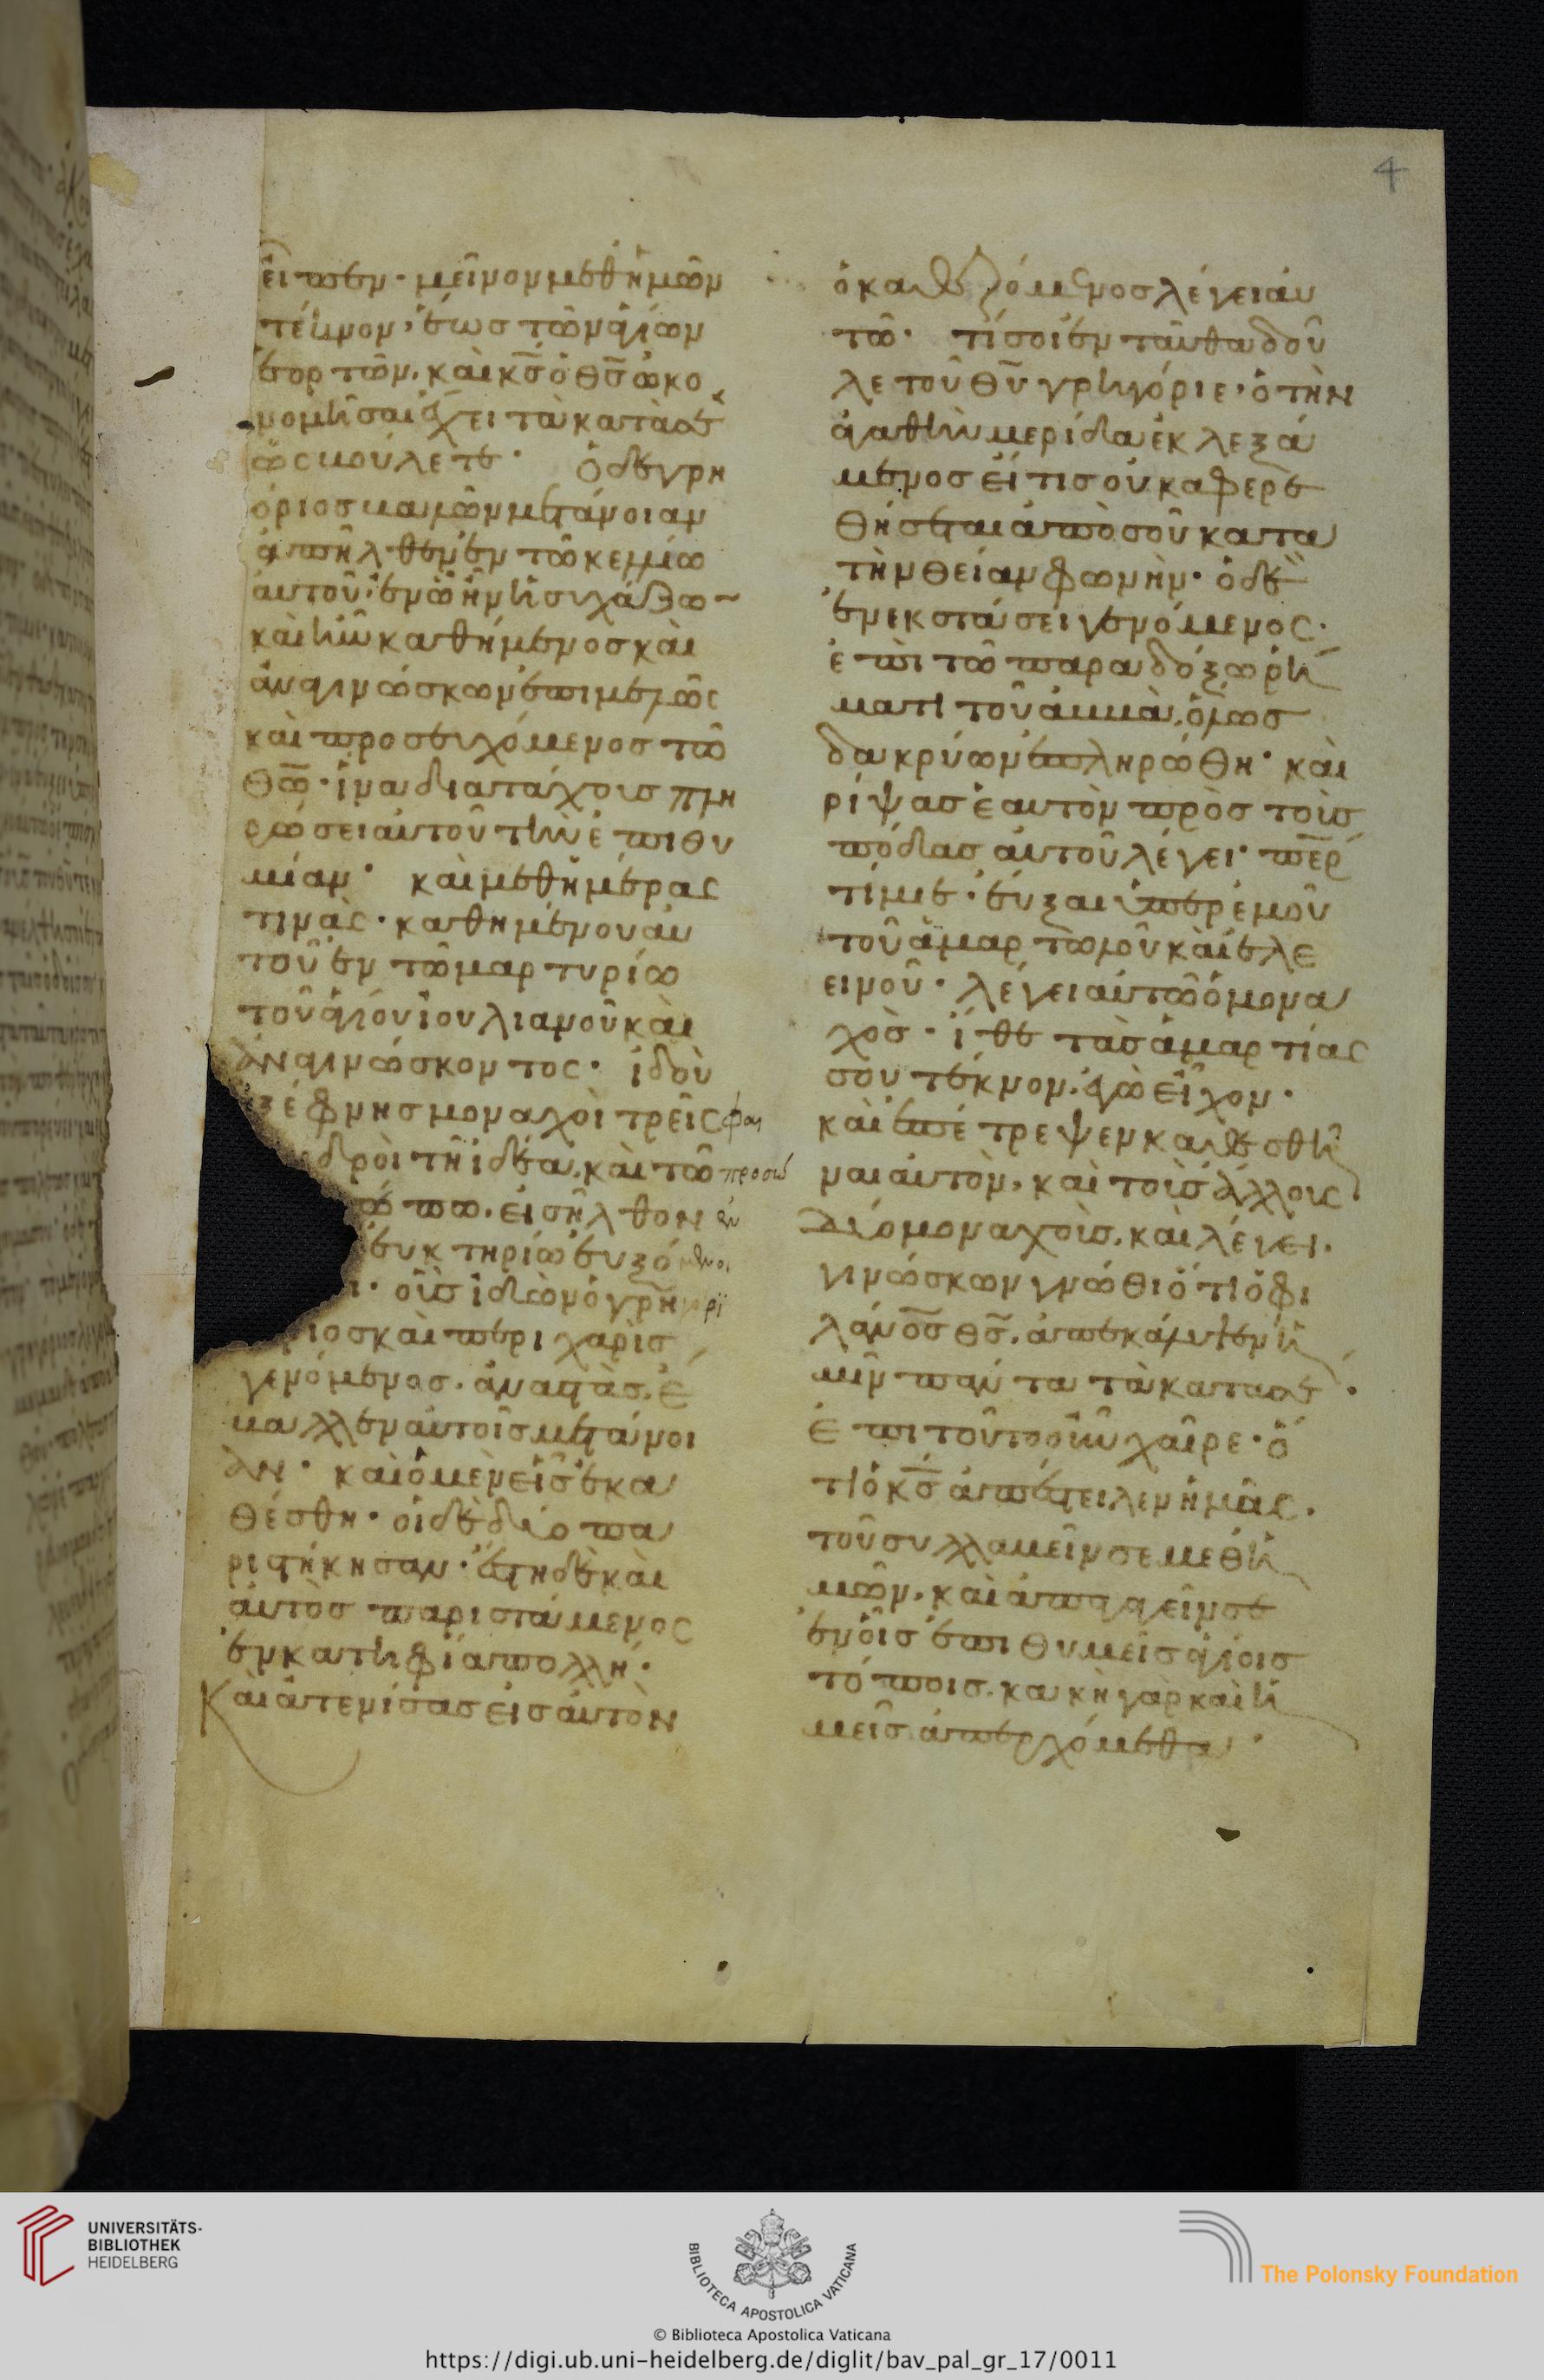 4
εἶπεν· μεῖνον μεθημῶν
τέκνον, ἕως τῶν ἁγίων
ἑορτῶν, καὶ κ̅ς̅ ὁ θ̅ς̅ ὠκο
νομῆσαι ἔχει τὰ κατὰ σὲ
ὡς βούλετε· Ὁ δὲ γρη
όριος βαλὼν μετάνοιαν
ἀπῆλθεν ἐν τῶ κελλίω
αυτοῦ· ἐν ὧ ἦν ἡσυχάζω~
καὶ ἦν καθήμενος καὶ
ἀναγινώσκων ἐπιμελῶς
καὶ προσευχόμενος τῶ
θ̅ω̅· ἵνα διατάχους πλη
ρώσει αὐτοῦ τὴν ἐπιθυ
μίαν· καὶ μεθημέρας
τινὰς· καθημένου αὐ
τοῦ ἐν τῶ μαρτυρίω
τοῦ ἁγίου ἰουλιανοῦ καὶ
ἀναγινώσκοντος· ἰδοὺ
ἐξέφνης μοναχοὶ τρεῖς φαι
δροὶ τῆ ἰδέα, καὶ τῶ προσώ
ώπω. εἰσῆλθον ἐν
εὐκτηρίω εὐξόμενοι
ι· οὓς ἰδὼν ὁ γρηγορι
ιος καὶ περιχαρὶς
γενόμενος. ἀναστὰς, ἔ
βαλλεν αὐτοῖς μετάνοι
αν· καὶ ὁ μὲν εἷς ἐκα
θέσθη· οἱ δὲ δύο πα
ριστήκησαν· ἔστη δὲ καὶ
ἀυτὸς παριστάμενος
ἐν κατηφία πολλῆ·
Καὶ ἀτενίσας εἰς αὐτὸν
ὁ καθεζόμενος λέγει αὐ
τῶ· τί σοι ἐνταῦθα δοῦ
λε τοῦ θ̅υ̅ γρηγόριε· ὁ τὴν
ἀγαθὴν μερίδα ἐκλεξά
μενος εἴ τις οὐκ αφερε
θήσεται ἀπὸ σοῦ κατα
τὴν θείαν φωνὴν· ὁ δὲ
ἐν εκστάσει γενόμενος·
ἐπὶ τῶ παραδόξω ῥή
ματι τοῦ ἀββὰ, ὅμως
δακρύων ἐπληρώθη· καὶ
ρίψας ἑαυτὸν πρὸς τοὺς
πόδας αὐτοῦ λέγει· π̅ε̅ρ
τίμιε· εὖξαι ὑπὲρ ἐμοῦ
τοῦ ἁμαρτωλοῦ καὶ ἐλε
εινοῦ· λέγει αὐτῶ ὁ μονα
χὸς· ἴθε τὰς ἁμαρτίας
σου τέκνον, ἐγὼ εἶχον·
καὶ ἐπέτρεψεν καθεσθῆ
ναι αὐτὸν, καὶ τοῖς ἄλλοις
δύο μοναχοῖς, καὶ λέγει·
γινώσκων γνώθι ὅτι ὁ φι
λάν̅ο̅ς̅ θ̅ς̅, ἀπεκάλυψεν ἡ
μῖν πάντα τὰ κατα σὲ·
ἐπι τοῦτο οὖν χαῖρε· ὅ
τι ὁ κ̅ς̅ ἀπέστειλεν ἡμᾶς·
τοῦ συλλαβεῖν σε μεθ ἡ
μῶν, καὶ ἀπαγαγεῖν σε
ἐν οἷς ἐπιθυμεῖς ἁγίοις
τόποις. κακὴ γὰρ καὶ ἡ
μεῖς ἀπερχόμεθα·
UNIVERSITÄTS-
BIBLIOTHEK
HEIDELBERG
BIBLIOTECA APOSTOLICA VATICANA
The Polonsky Foundation
© Biblioteca Apostolica Vaticana
https://digi.ub.uni-heidelberg.de/diglit/bav_pal_gr_17/0011